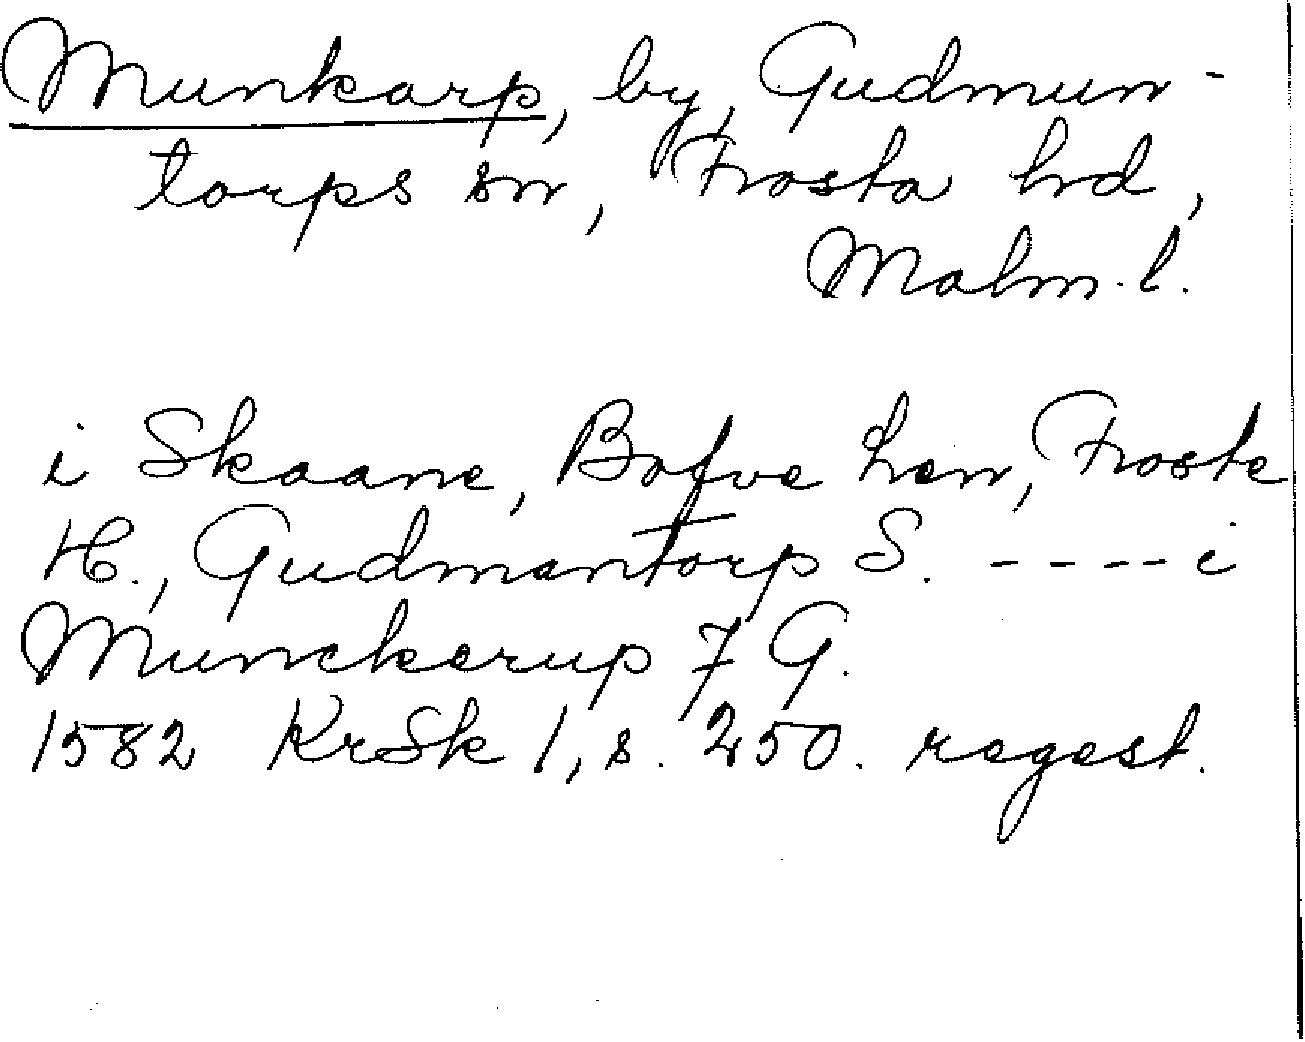 Munkarp, by, Gudmun-
torps sn, Frosta hd,
Malm. l.
i Skaane, Bofve Len, Froste
H., Gudmantorp S. ---- i
Munckerup 7 G.
1582 KrSk 1, s. 250. regest.